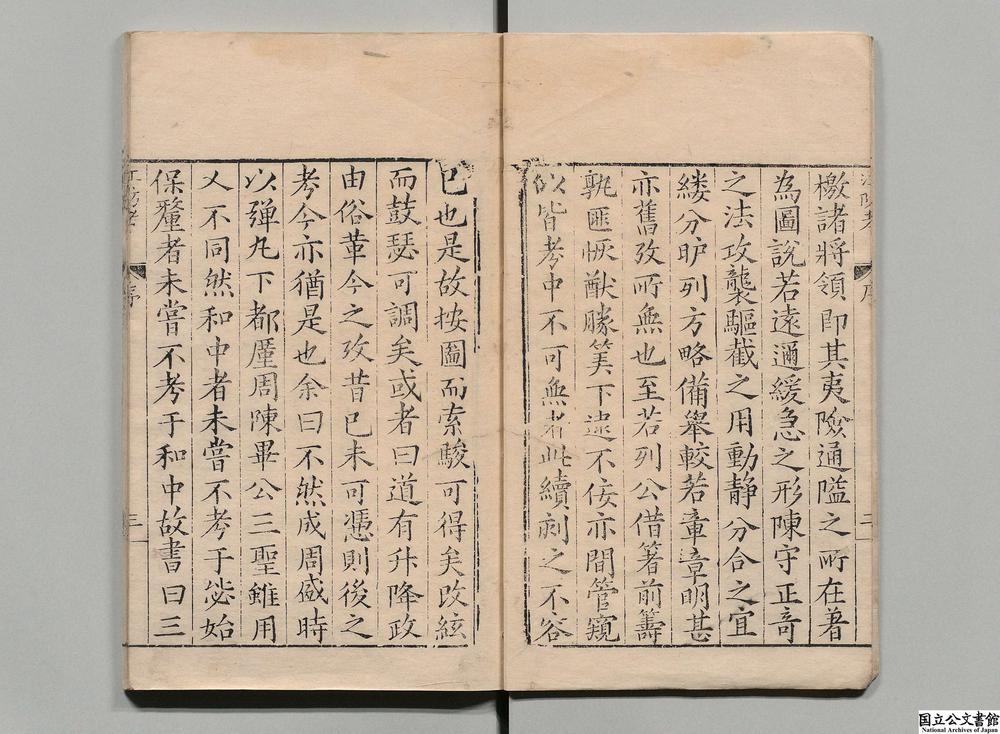 檄諸將領即其夷險通隘之所在著
為圖說若遠邇緩急之形陳守正奇
之法攻襲驅截之用動靜分合之宜
縷分眆列方略備舉較若章章明甚
亦舊攷所無也至若列公借箸前籌
孰匪恢猷勝筭下逮不佞亦間管窺
以皆考中不可無者此續刻之不容
江防考
序
二
已也是故按圖而索駿可得矣改絃
而鼓瑟可調矣或者曰道有升降政
由俗革今之攷昔已未可憑則後之
考今亦猶是也余曰不然成周盛時
以弹丸下都厪周陳畢公三聖雖用
乂不同然和中者未嘗不考于毖始
保釐者未嘗不考于和中故書曰三
江防考
序
三
国立公文書館
National Archives of Japan